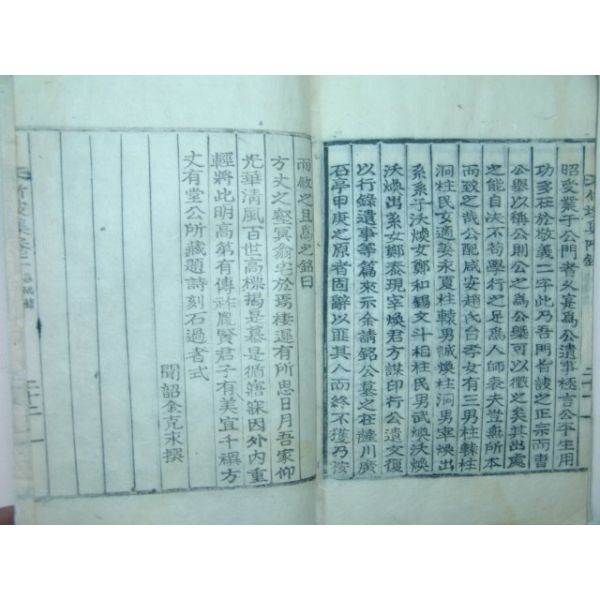 昭受業于公門者又實爲公遺事極言公平生用
功多在於敬義二字此乃吾門皆詖之正宗而曹
公擧以稱公則公之爲公槩可以徵之矣其出處
之能自決不苟學行之足爲人師表夫豈無所本
之哉公配咸安趙氏台 女有三男柱 柱
洞柱民女適姜永夏柱轅男誠煥柱洞男宰煥出
系系子沃煥女鄭和錫文斗相柱民男武煥沃煥
沃煥出系女鄭泰現宰煥君方謀印行公遺文復
以行錄遺事等篇來示余請銘公墓之在薩川廣
石亭甲庚之原者固辭以匪其人而終不獲乃按
而敘之且爲之銘曰
方丈之壑冥翁宅於焉棲遲有所思日月吾家仰
光華清風百世高標揭是慕是循寤寐因外內重
輕將此明高第有傳祚胤賢君子有美宜千禩方
丈有堂公所藏題詩刻石過者式
聞韶金克永撰